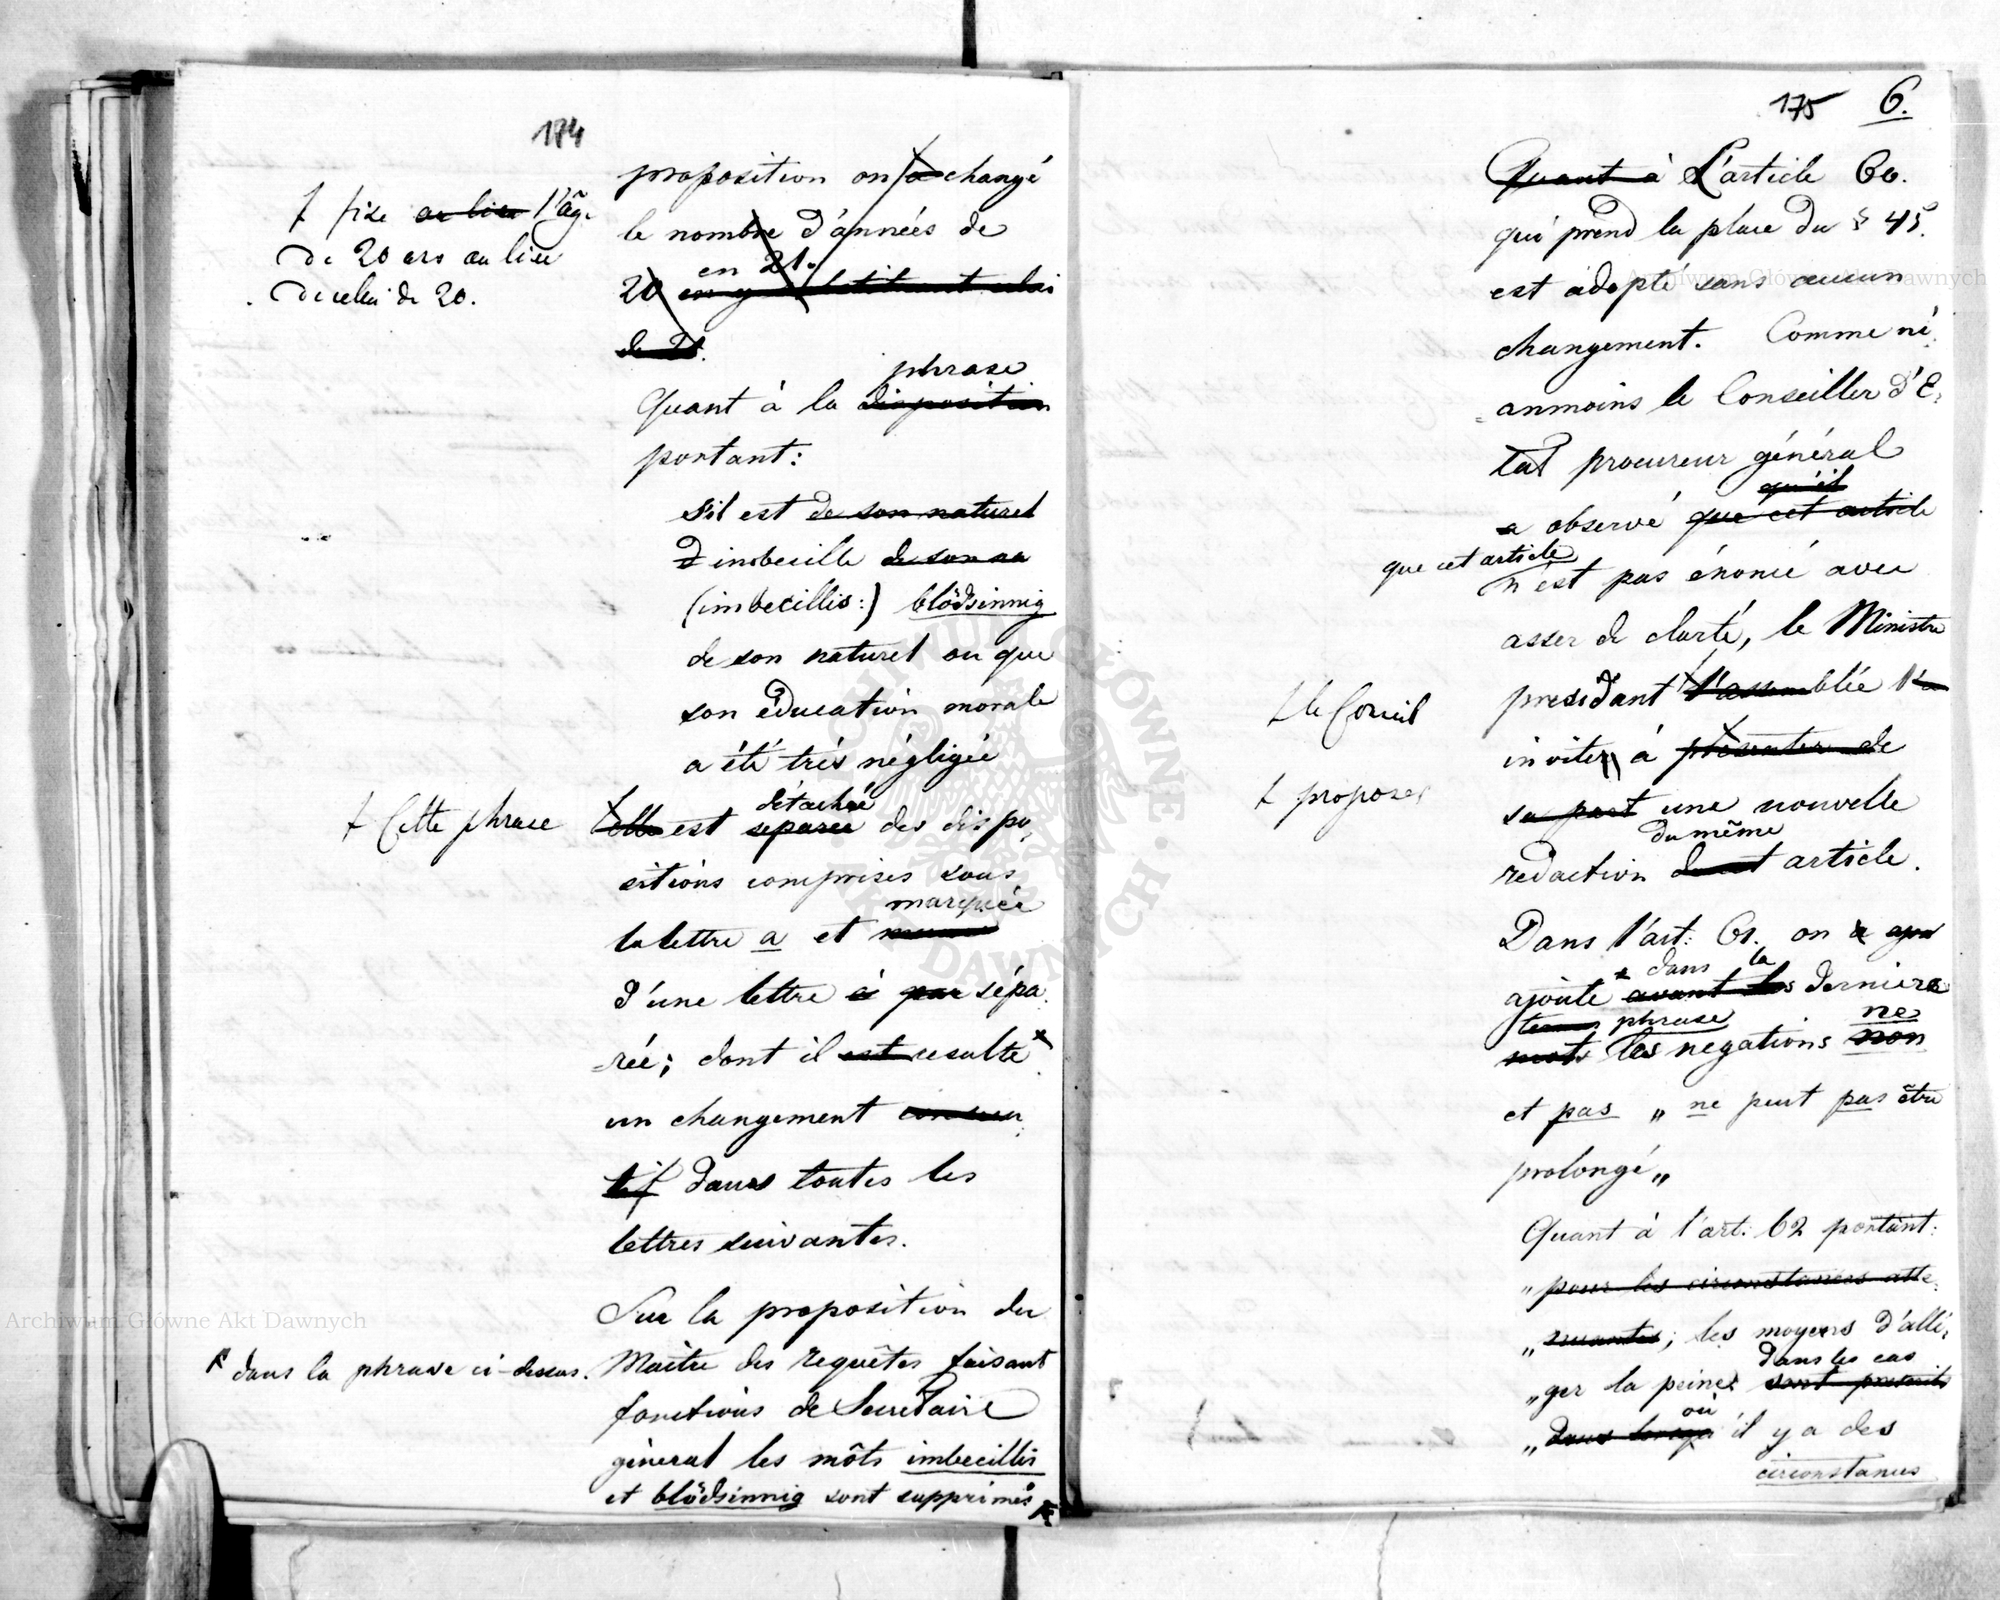 174
proposition on a changé
le nombre d'années de
en 21.
20 en y substituant celui
de 21.
† fixe au lieu l'âge
de 20 ans au lieu
de celui de 20.
phrase
Quant à la disposition
portant:
s'il est de son naturel
d'imbecille de son na
(imbecillis:) blödsinnig
de son naturel ou que
son éducation morale
a été trés négligée
† Cette phrase
détachée
elle est separée des dispo,
sitions comprises sous
marquée
la lettre a et
d'une lettre à par sépa
rée; dont il est resulte
un changement
tif dans toutes les
lettres suivantes.
Sur la proposition du
Maitre des requêtes faisant
fonctions de Secretaire
géneral les môts imbecillis
et blödsinnig sont supprimés
dans la phrase ci-dessus.
175 6.
Quant à L'article 60.
qui prend la place du § 45.
est adopté sans aucun
changement. Comme né
anmoins le Conseiller d'E,
tat procureur général
qu'il
a observé que cet article
que cet article
n'est pas énoncé avec
assez de clarté, le Ministre
présidant l'assemblée l'a
† le Conseil
inviter à présenter de
† proposer
sa part une nouvelle
du même
rédaction de cet article.
Dans l'art: 61. on a ajou
dans la
ajoute avant les derniere
termes phrase ne
mots les negations non
et pas „ ne peut pas être
prolongé„
Quant à l'art: 62 portant:
„pour les circonstances atte,
„nuantes; les moyens d'allé,
dans les cas
„ger la peine sont prescrits
où
„dans lorsqu'il y a des
circonstances
Archiwum Główne Akt Dawnych
Archiwum Główne Akt Dawnych
ARCHIWUM GŁÓWNE AKT DAWNYCH